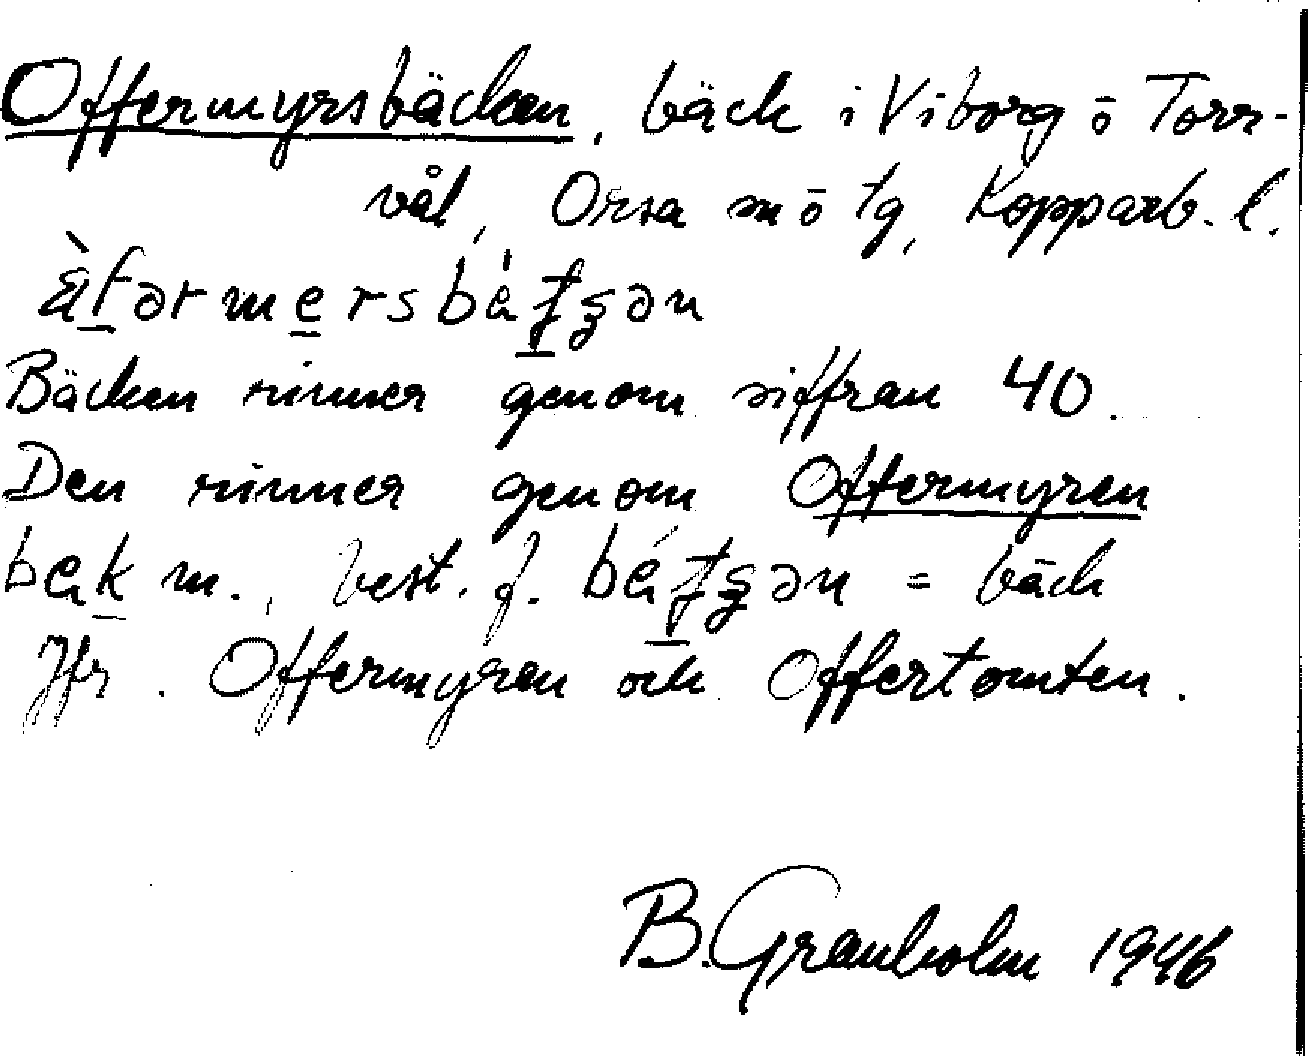 Offermyrsbäcken, bäck i Viborg ō Torr-
vål, Orsa m ō tg, Kopparb. l.
Bäcken rinner genom siffran 40.
Den rinner genom Offermyren
m., best. f. = bäck
Jfr. Offermyren och Offertomten.
B. Granholm 1946